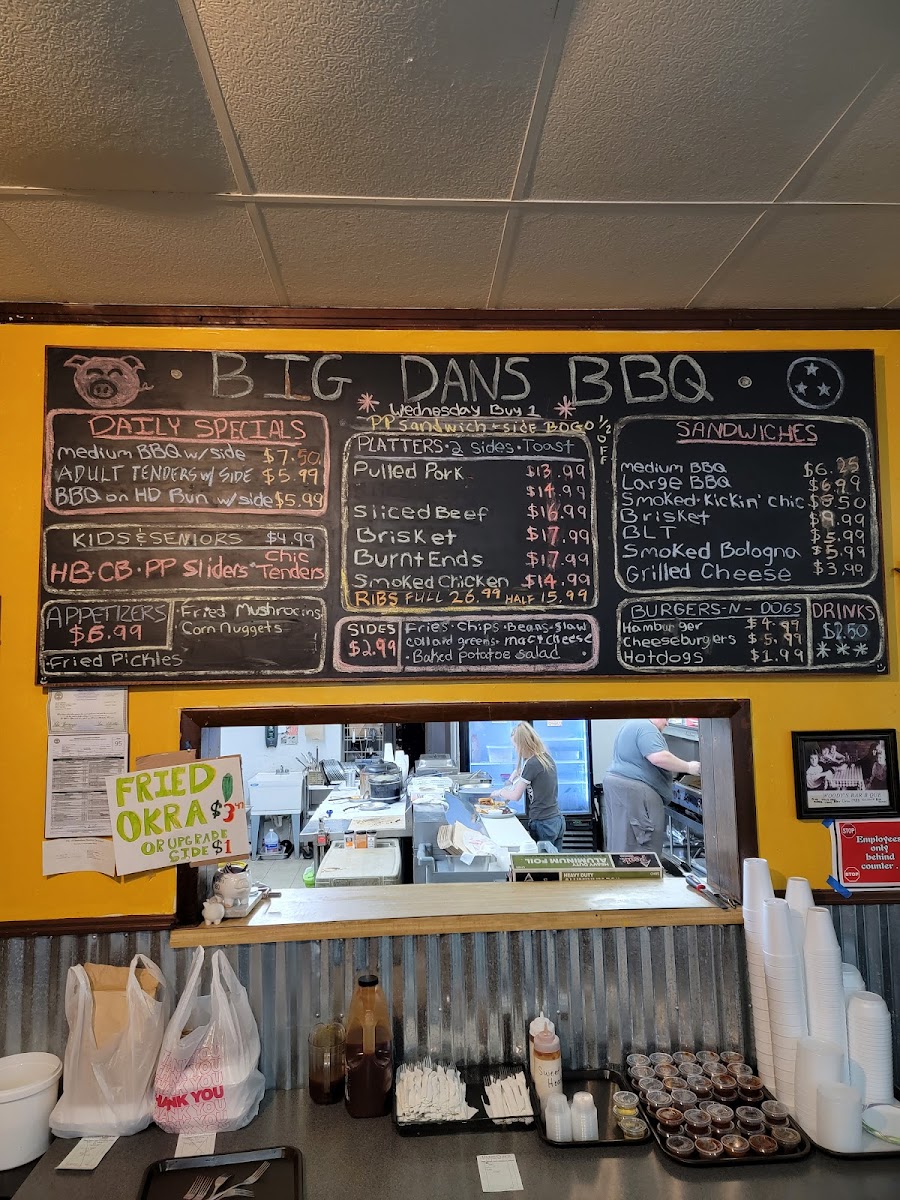 BIG DANS BBQ
Wednesday Buy 1
PP Sandwich + side BOGO 1/2 OFF
DAILY SPECIALS
medium BBQ w/side $7.50
ADULT TENDERS w/ SIDE $5.99
BBQ on HD Bun w/side $5.99
KIDS & SENIORS $4.99
HB·CB·PP Sliders chic Tenders
APPETIZERS
$6.99
Fried Mushrooms
Corn Nuggets
Fried Pickles
PLATTERS·2 Sides·Toast
Pulled Pork $13.99
$14.99
Sliced Beef $16.99
Brisket $17.99
Burnt Ends $17.99
Smoked Chicken $14.99
RIBS FULL 26.99 HALF 15.99
SIDES
$2.99
Fries·Chips·Beans·slaw
collard greens·mac+cheese
·Baked potatoe salad
SANDWICHES
medium BBQ $6.25
Large BBQ $6.99
Smoked·Kickin' chic $6.50
Brisket $9.99
BLT $5.99
Smoked Bologna $5.99
Grilled Cheese $3.99
BURGERS-N-DOGS
Hamburger $4.99
Cheeseburgers $5.99
Hotdogs $1.99
DRINKS
$2.50
***
FRIED
OKRA $3
OR UPGRADE
SIDE $1
HEAVY DUTY
ALUMINUM FOIL
HEAVY DUTY
STOP
Employees
only
behind
counter.
STOP
THANK YOU